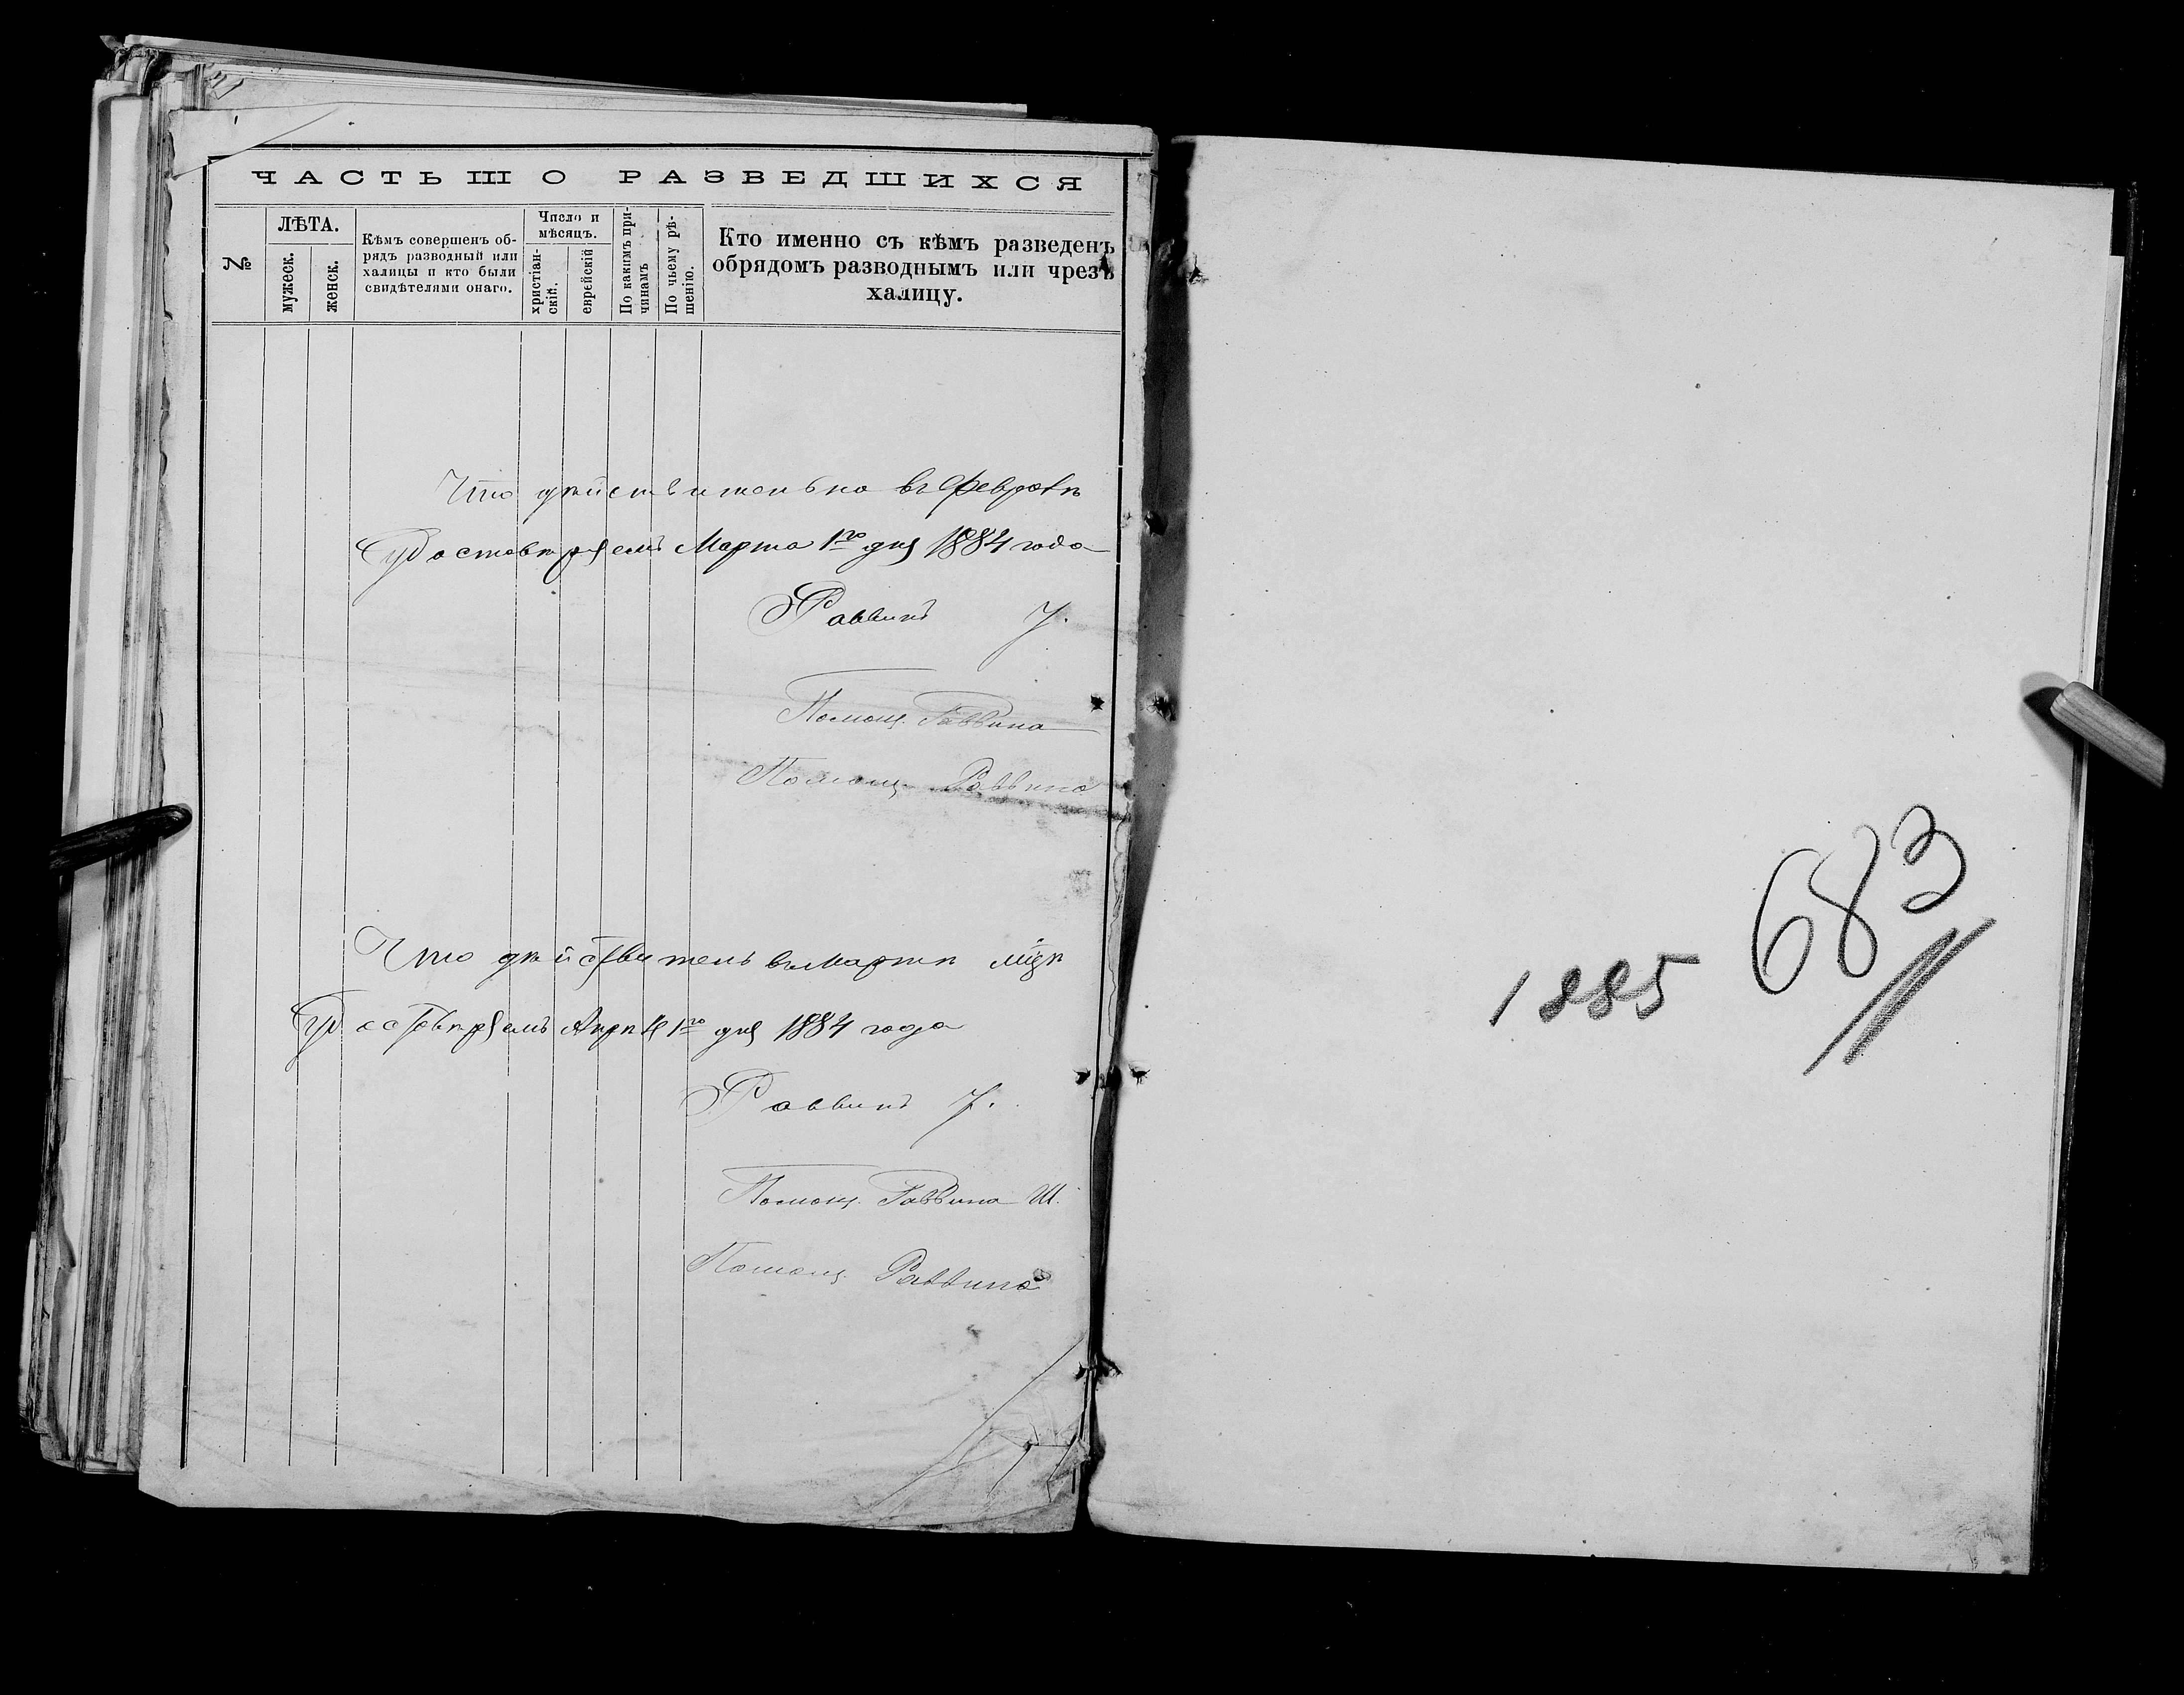 ЧАСТЬ III О РАЗВЕДШИХСЯ
№
ЛѢТА.
мужеск.
женск.
Кѣмъ совершенъ об-
рядъ разводный или
халицы и кто были
свидѣтелями онаго.
Число и
мѣсяцъ.
христіан-
скій.
еврейскій
По какимъ при-
чинамъ
По чьему рѣ-
шенію.
Кто именно съ кѣмъ разведенъ
обрядомъ разводнымъ или чрезъ
халицу.
Что дѣйствительно въ Февралѣ
Удостовѣряемъ Марта 1го дня 1884 года
Раввинъ
Помощ. Раввина
Помощ. Раввина
Что дѣйствитель въ Мартѣ мцѣ
Удостовѣряемъ Апрѣля 1го дня 1884 года
Раввинъ
Помощ. Раввина Ш.
Помощ. Раввина
683
1885